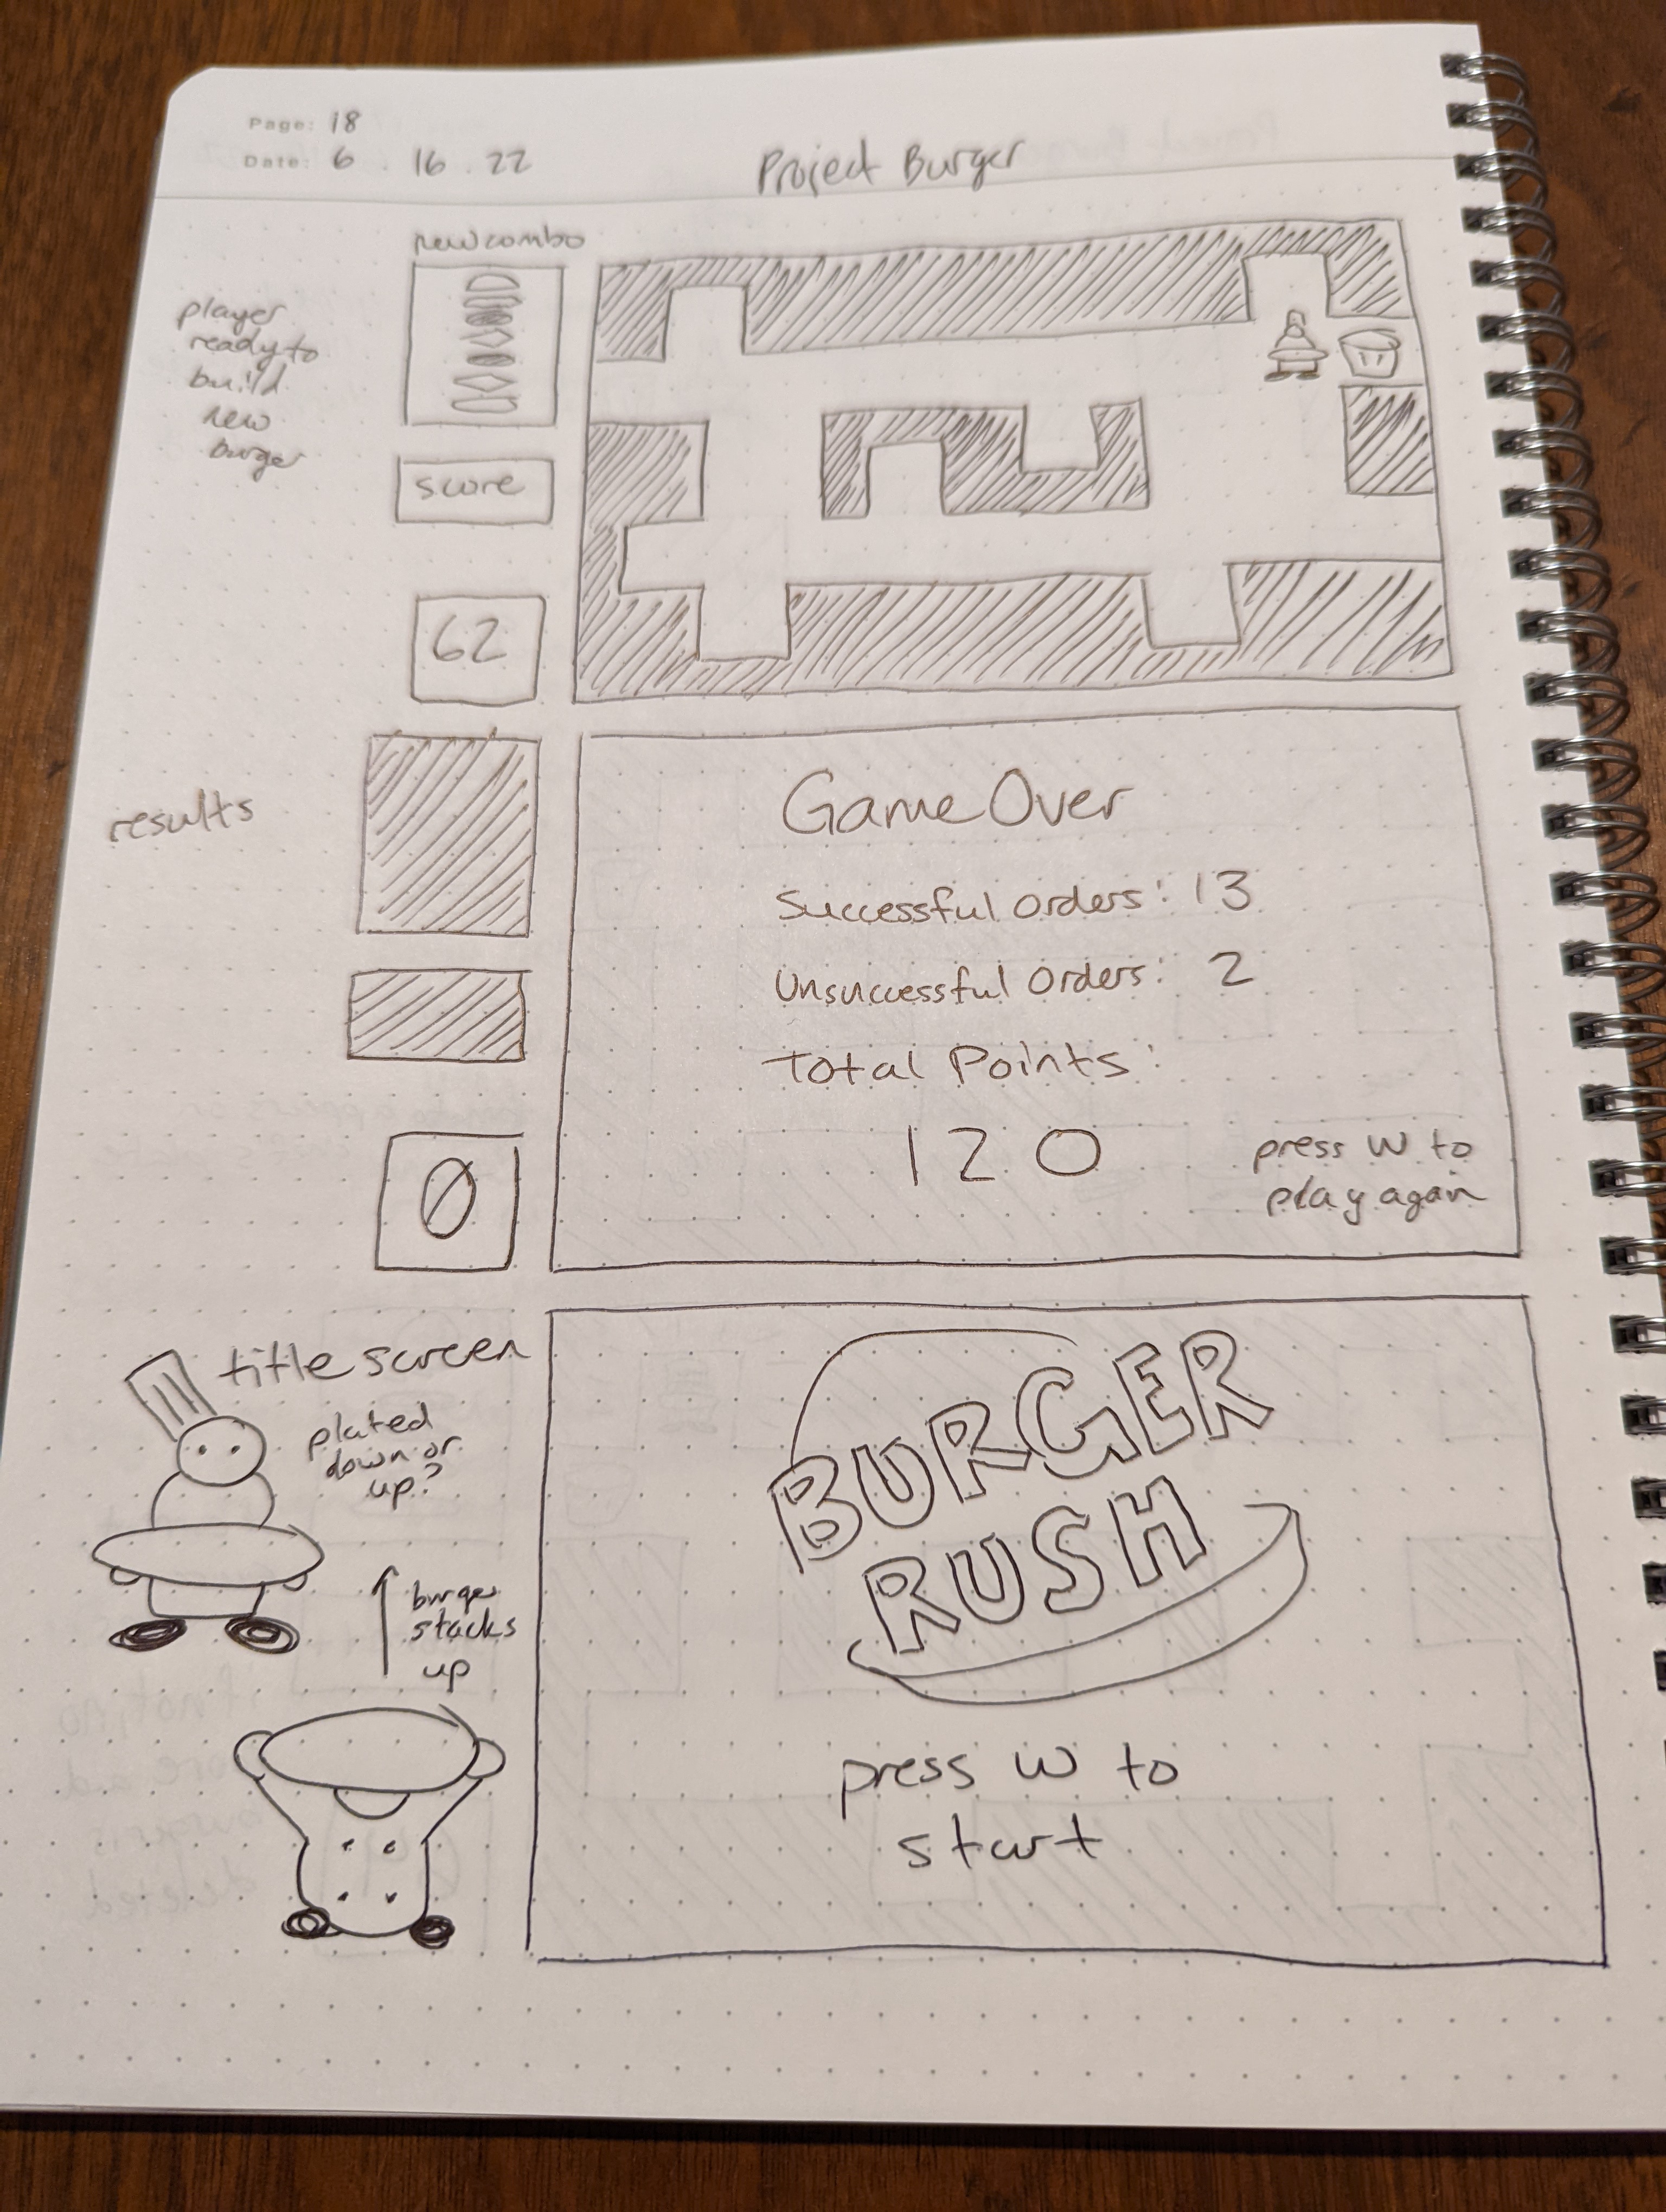 Page: 18
Date: 6 . 16 . 22
Project Burger
new combo
player
ready to
build
new
burger
score
62
results
Game Over
Successful Orders: 13
Unsuccessful Orders: 2
Total Points:
120
press W to
play again
0
title screen
plated
down or
up?
burger
stacks
up
BURGER
RUSH
press W to
start